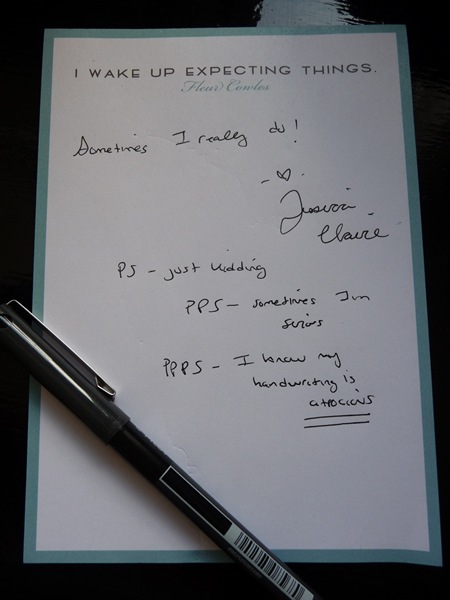 I WAKE UP EXPECTING THINGS.
Fleur Cowles
Sometimes I really do!
- ♡
Jessica
Claire
PS - just kidding
PPS - sometimes I'm
serious
PPPS - I know my
handwriting is
atrocious